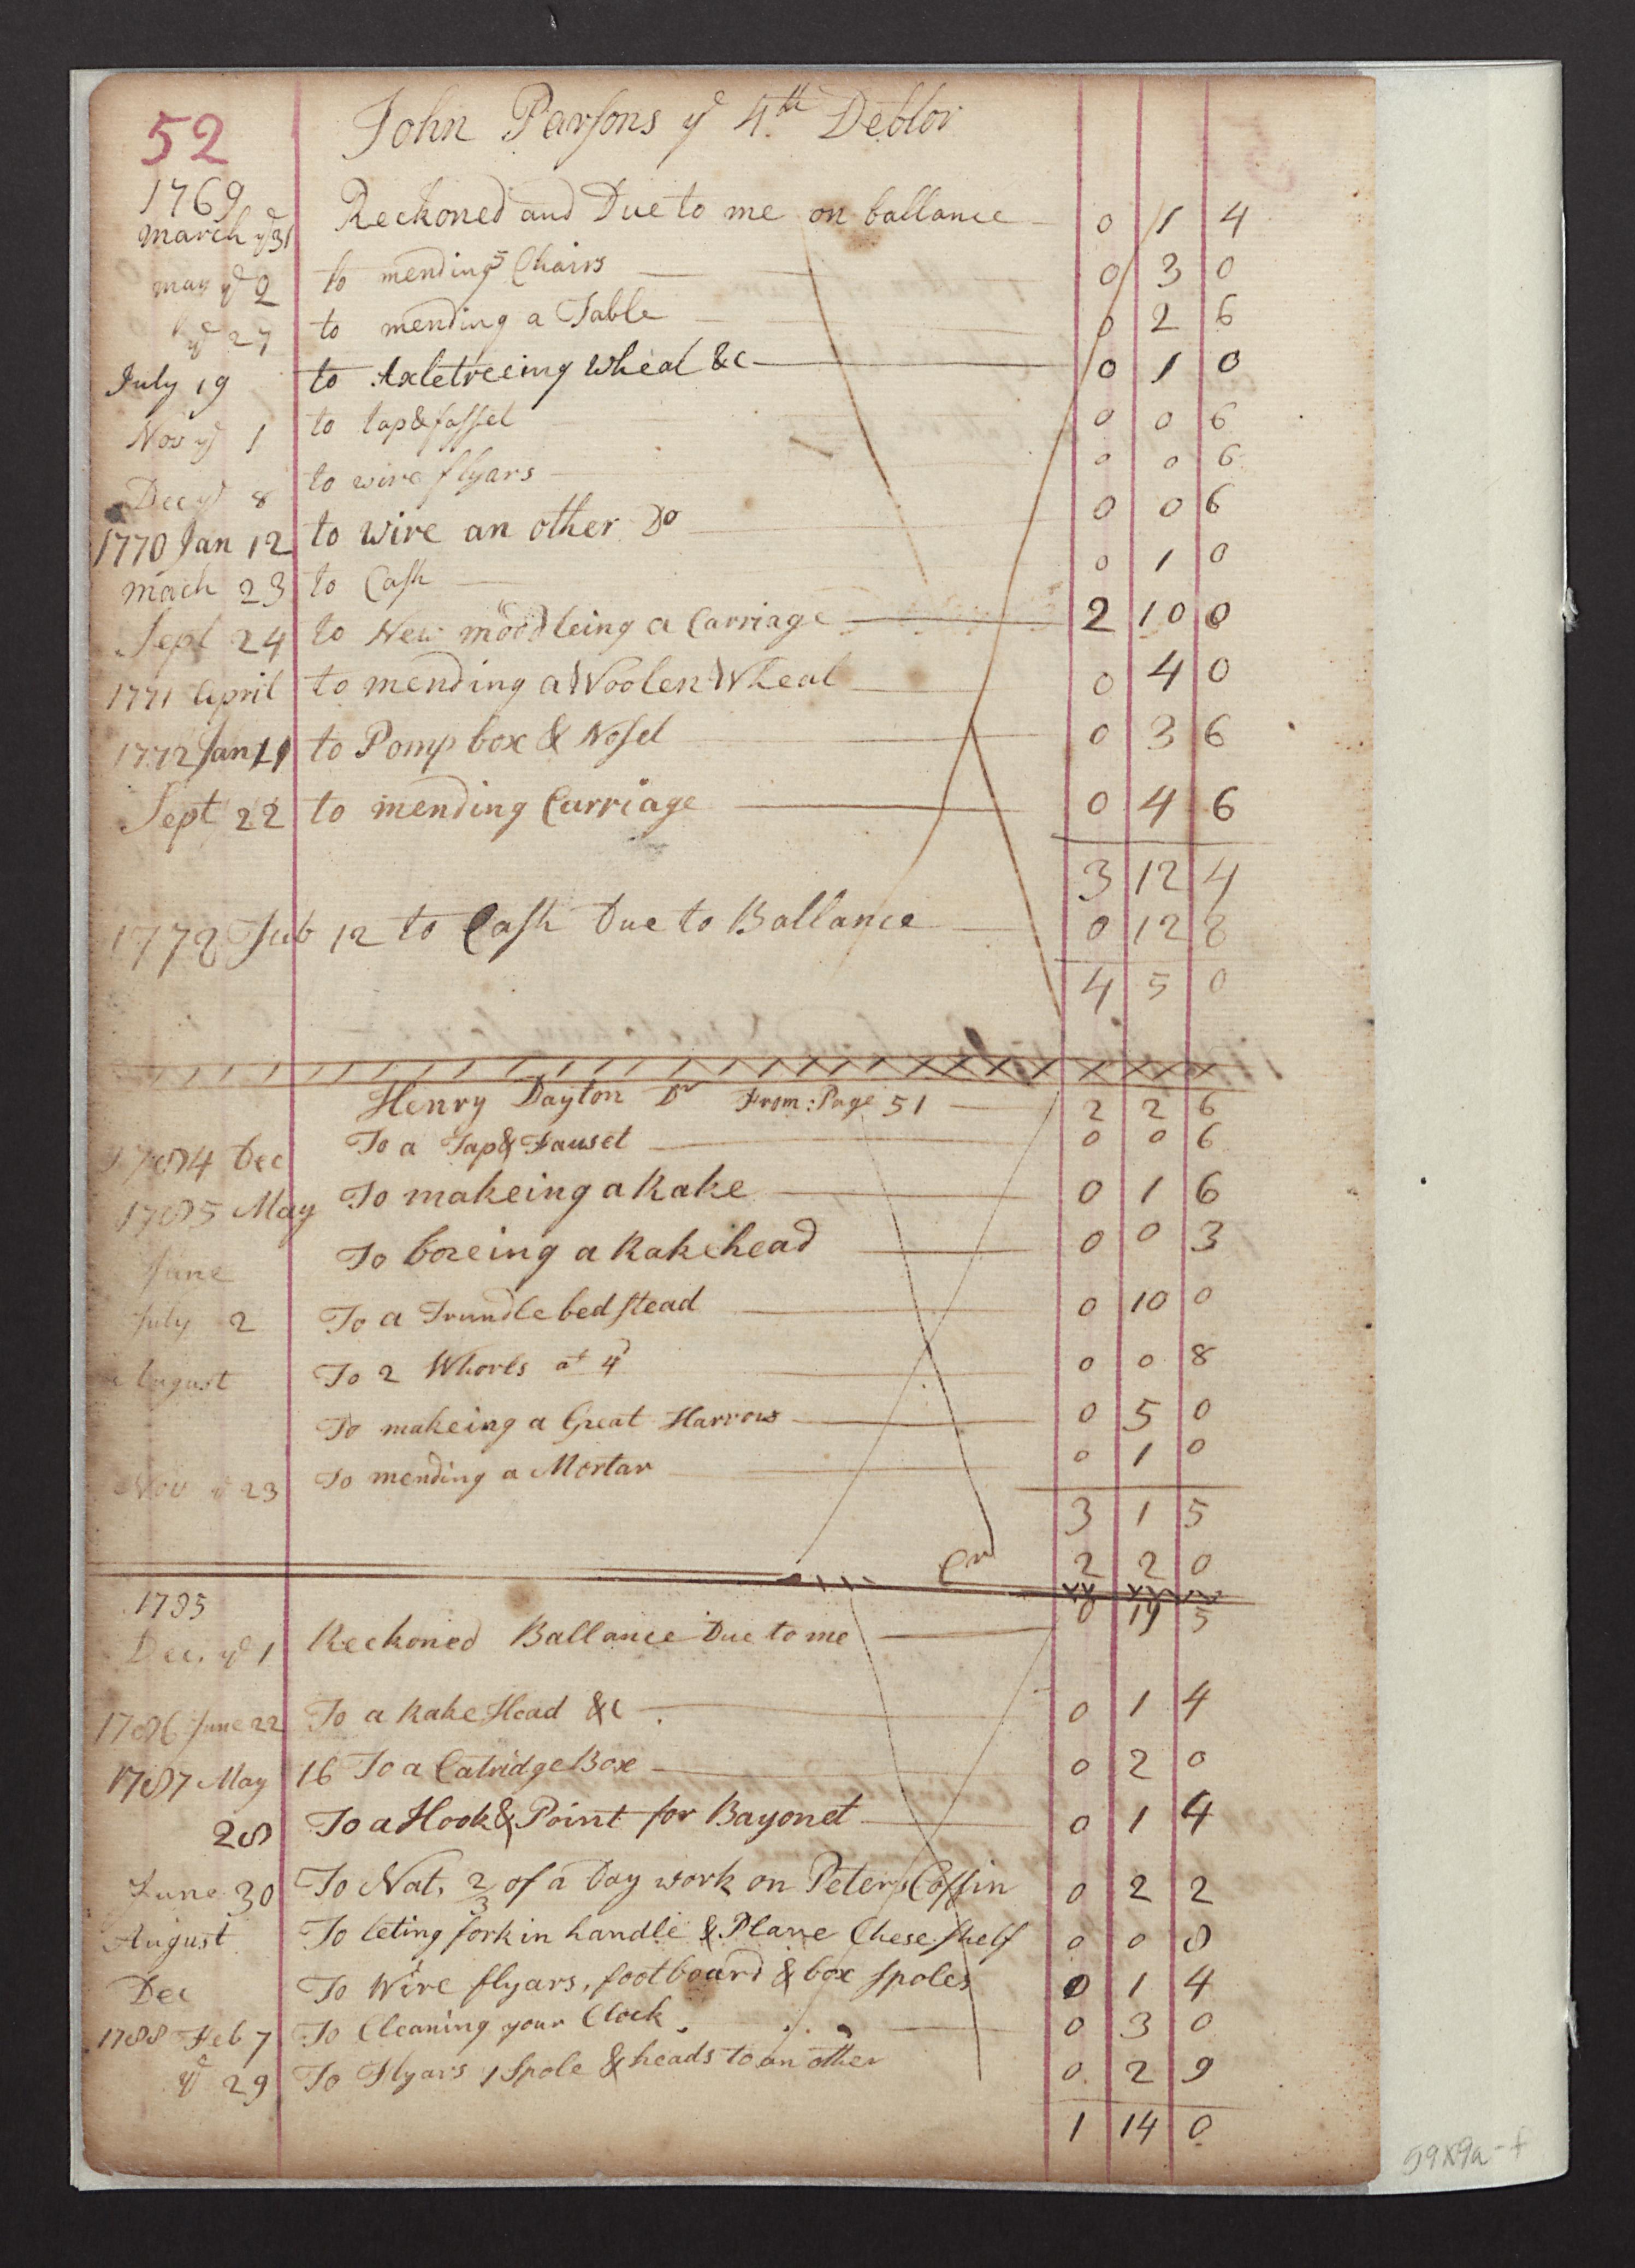 52 John Parsons yᵉ 4.th Debtor
1769
march yᵉ 31 Reckoned and Due to me on ballance 0 1 4
may yᵉ 2 to mending 5 Chairs 0 3 0
yᵉ 27 to mending a Table 0 2 6
July 19 to Axletreeing Wheal &c 0 1 0
Nov yᵉ 1 to tap & fassel 0 0 6
Dec yᵉ 8 to wire flyars 0 0 6
1770 Jan 12 to Wire an other Do 0 0 6
mach 23 to Cash 0 1 0
Sept 24 to New moodleing a Carriage 2 10 0
1771 April to mending a Woolen Wheal 0 4 0
1772 Jan 11 to Pomp box & Nosel 0 3 6
Sept 22 to mending Carriage 0 4 6
3 12 4
1778 Feb 12 to Cash Due to Ballance 0 12 8
4 5 0
Henry Dayton Dr From: Page 51 2 2 6
1784 Dec To a Tap & Fauset 0 0 6
1785 May To makeing a Rake 0 1 6
June To boreing a Rakehead 0 0 3
July 2 To a Trundle bedstead 0 10 0
August To 2 Whorls at 4d 0 0 8
To makeing a Great Harrow 0 5 0
Nov yᵉ 23 To mending a Mortar 0 1 0
3 1 5
Cr 2 2 0
1785
Dec. yᵉ 1 Reckoned Ballance Due to me 0 19 5
1786 June 22 To a Rake Head &c 0 1 4
1787 May 16 To a Catridge Box 0 2 0
28 To a Hook & Point for Bayonet 0 1 4
June 30 To Nat. 2/3 of a Day work on Peter Coffin 0 2 2
August To leting fork in handle & Plane Chese shelf 0 0 8
Dec To Wire flyars, footboard & box spoles 0 1 4
1788 Feb 7 To Cleaning your Clock 0 3 0
yᵉ 29 To Flyars 1 Spole & heads to an other 0 2 9
1 14 0
59x9a-f